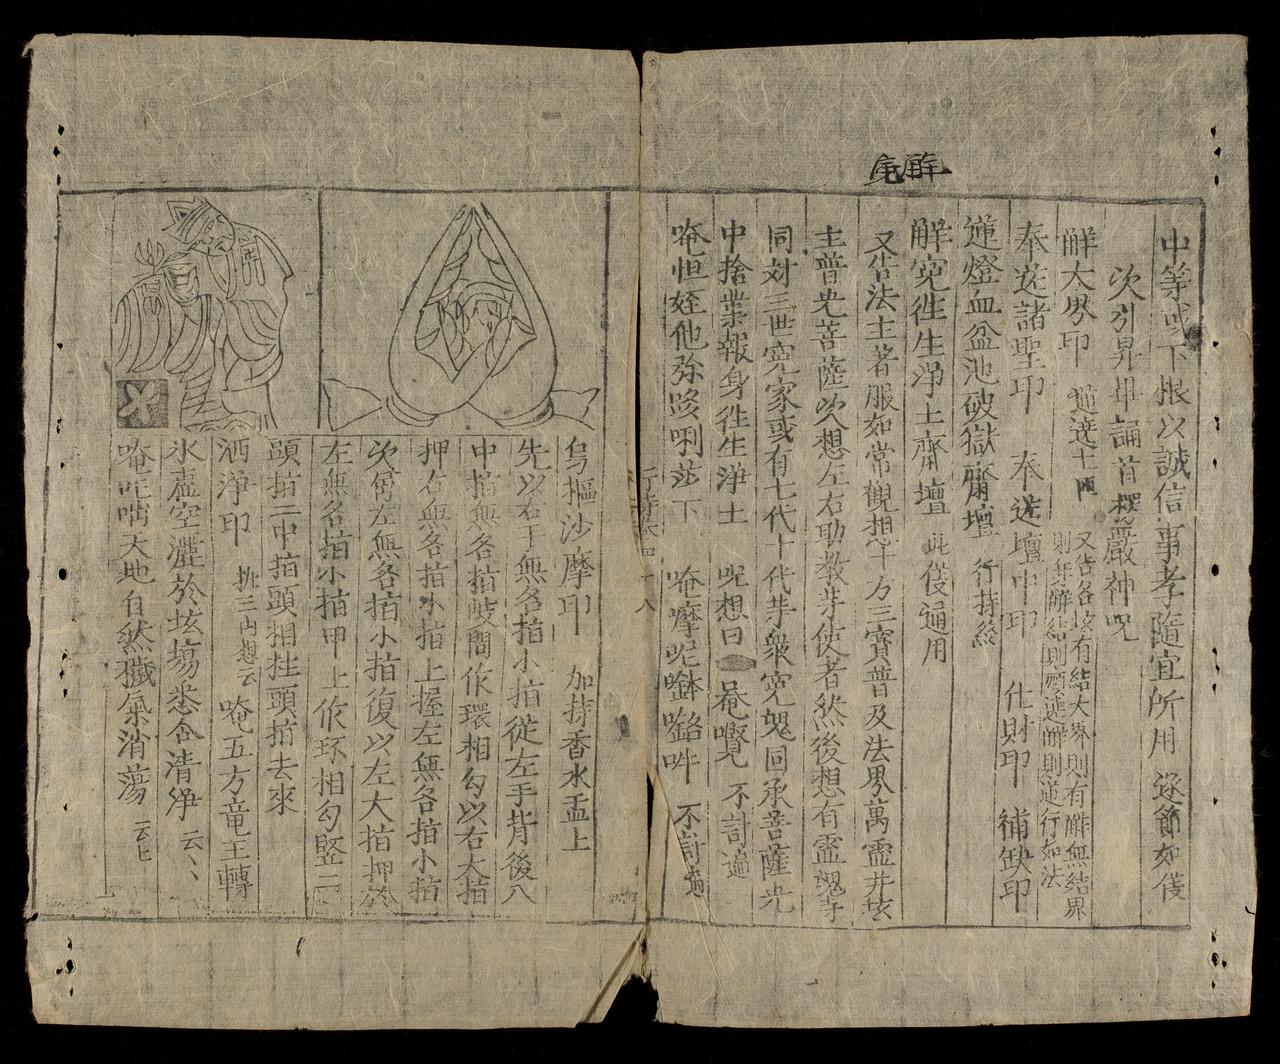 解寃
中等或下根以誠信事孝隨宜所用 逐節如後
次引昇毋誦首楞嚴神呪
解大界印
又告各垓有結大界則有解無結界
奉送諸聖印 奉送壇中印 化財印 補缺印
蓮燈血盆池破獄齋壇 行持終
解寃徃生浄土齋壇 此後通用
又告法主著服如常観想十方三寳普及法界萬霊并垓
主普光菩薩次想左右助教并使者然後想有霊魂等
同対三世寃家或有七代十代并衆寃魂同承菩薩光
中捨業報身徃生浄土 呪想曰 不討遍
唵怛姪他弥 唵摩呢 不討遍
烏樞沙摩印 加持香水盂上
先以右手無名指小指從左手背後入
中指無各指岐間作環相勾以右大指
押右無各指小指上握左無各指小指
次屈左無各指小指復以左大指押於
左無名指小指甲上作环相勾竪二
頭指二中指頭相拄頭指去來
洒浄印 唵五方竜王轉
水虚空灑於垓塲悉令清浄 云、、
唵吽 天地自然穢氣消蕩